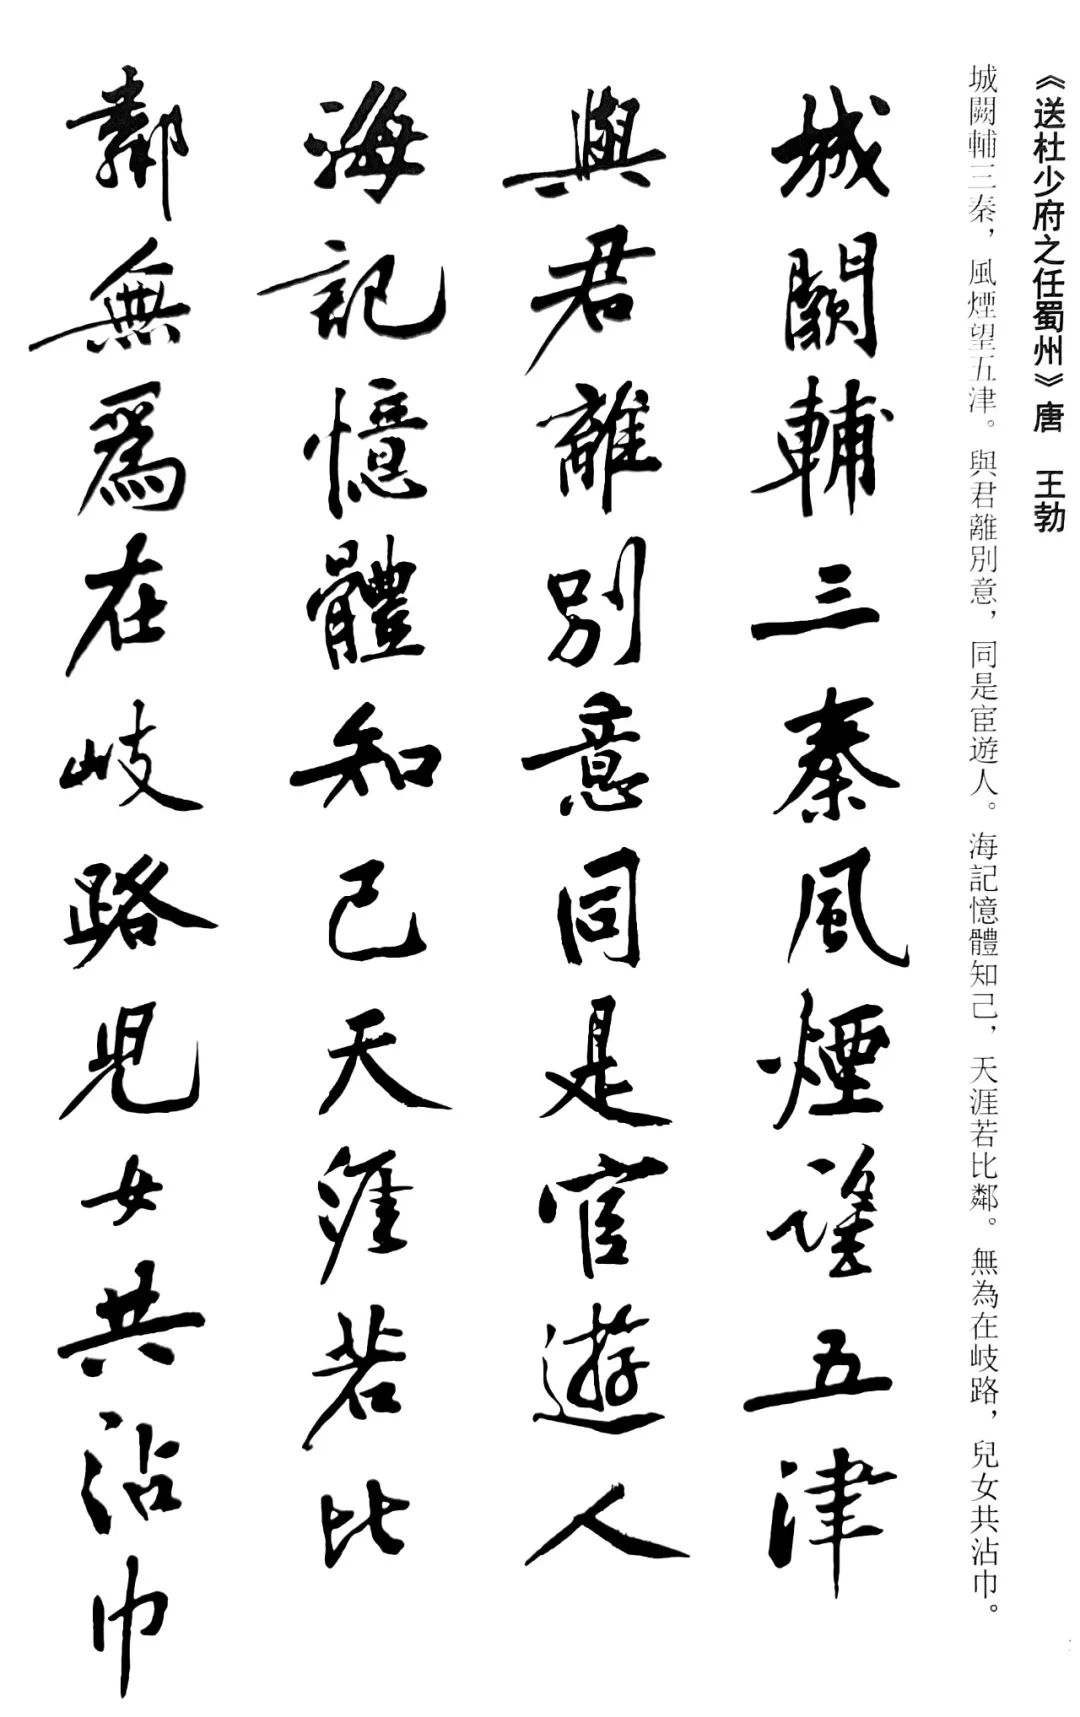 《送杜少府之任蜀州》唐　王勃
城闕輔三秦，風煙望五津。與君離別意，同是宦遊人。海記憶體知己，天涯若比鄰。無為在岐路，兒女共沾巾。
城闕輔三秦風煙望五津
與君離別意同是宦遊人
海記憶體知己天涯若比
鄰無爲在岐路兒女共沾巾